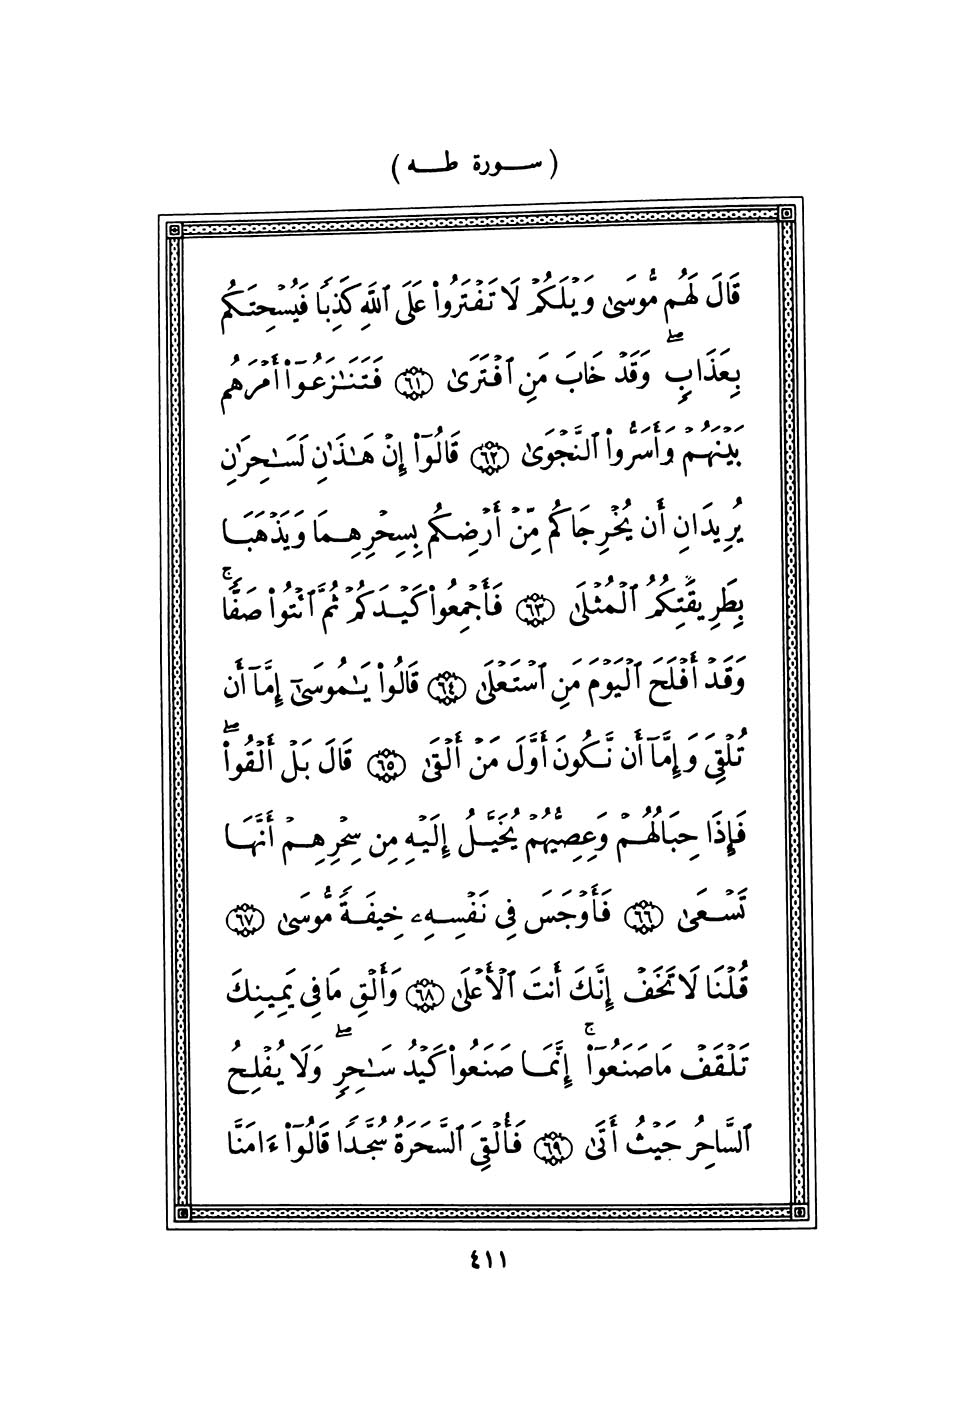 ( ســورة طــه )
قَالَ لَهُم مُّوسَىٰ وَيْلَكُمْ لَا تَفْتَرُوا۟ عَلَى ٱللَّهِ كَذِبًا فَيُسْحِتَكُم
بِعَذَابٍۢ ۖ وَقَدْ خَابَ مَنِ ٱفْتَرَىٰ ٦١ فَتَنَـٰزَعُوٓا۟ أَمْرَهُم
بَيْنَهُمْ وَأَسَرُّوا۟ ٱلنَّجْوَىٰ ٦٢ قَالُوٓا۟ إِنْ هَـٰذَٰنِ لَسَـٰحِرَٰنِ
يُرِيدَانِ أَن يُخْرِجَاكُم مِّنْ أَرْضِكُم بِسِحْرِهِمَا وَيَذْهَبَا
بِطَرِيقَتِكُمُ ٱلْمُثْلَىٰ ٦٣ فَأَجْمِعُوا۟ كَيْدَكُمْ ثُمَّ ٱئْتُوا۟ صَفًّا ۚ
وَقَدْ أَفْلَحَ ٱلْيَوْمَ مَنِ ٱسْتَعْلَىٰ ٦٤ قَالُوا۟ يَـٰمُوسَىٰٓ إِمَّآ أَن
تُلْقِىَ وَإِمَّآ أَن نَّكُونَ أَوَّلَ مَنْ أَلْقَىٰ ٦٥ قَالَ بَلْ أَلْقُوا۟ ۖ
فَإِذَا حِبَالُهُمْ وَعِصِيُّهُمْ يُخَيَّلُ إِلَيْهِ مِن سِحْرِهِمْ أَنَّهَا
تَسْعَىٰ ٦٦ فَأَوْجَسَ فِى نَفْسِهِۦ خِيفَةً مُّوسَىٰ ٦٧
قُلْنَا لَا تَخَفْ إِنَّكَ أَنتَ ٱلْأَعْلَىٰ ٦٨ وَأَلْقِ مَا فِى يَمِينِكَ
تَلْقَفْ مَا صَنَعُوٓا۟ ۚ إِنَّمَا صَنَعُوا۟ كَيْدُ سَـٰحِرٍۢ ۖ وَلَا يُفْلِحُ
ٱلسَّاحِرُ حَيْثُ أَتَىٰ ٦٩ فَأُلْقِىَ ٱلسَّحَرَةُ سُجَّدًا قَالُوٓا۟ ءَامَنَّا
٤١١